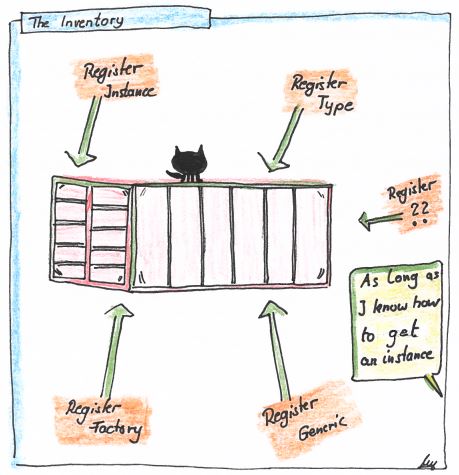 The Inventory
Register
Instance
Register
Type
Register
??
As long as
I know how
to get
an instance
Register
Factory
Register
Generic